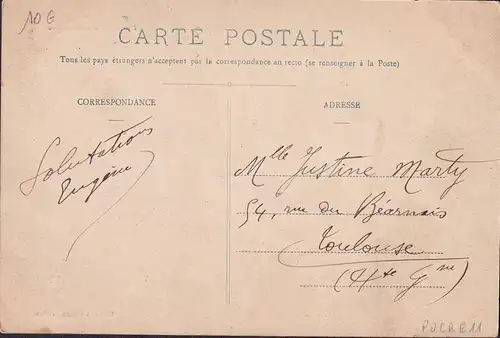 10 €
CARTE POSTALE
Tous les pays étrangers n'acceptent pas la correspondance au recto (se renseigner à la Poste)
CORRESPONDANCE
Salutations
Eugène
ADRESSE
Mlle Justine Marty
54, rue du Béarnais
Toulouse
(Hte Gne)